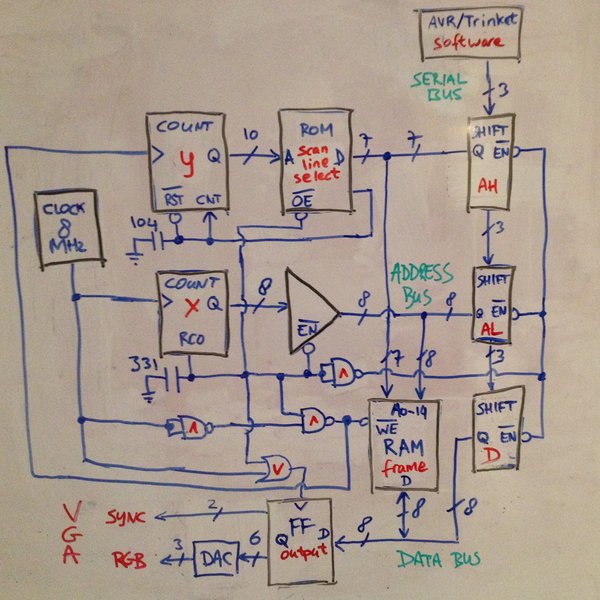 AVR/Trinket
software
SERIAL
BUS
3
COUNT
y
Q
RST
CNT
10
ROM
A
scan
line
select
D
OE
7
7
SHIFT
Q EN
AH
CLOCK
8
MHz
104
3
COUNT
X
Q
RCO
8
EN
8
ADDRESS
BUS
8
SHIFT
Q EN
AL
331
Λ
7
8
3
Λ
Λ
A0-14
WE
RAM
frame
D
SHIFT
Q EN
D
V
8
8
VGA
SYNC
2
FF
Q
D
output
8
RGB
3
DAC
6
DATA BUS